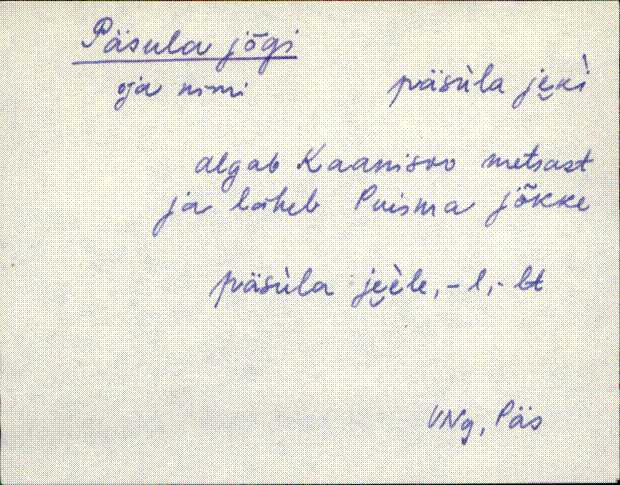 Päsula jõgi
oja nimi päsùla je̮kì
algab Kaanisoo metsast
ja läheb Puisma jõkke
päsùla je̮èle, -l, -lt
VNg, Päs